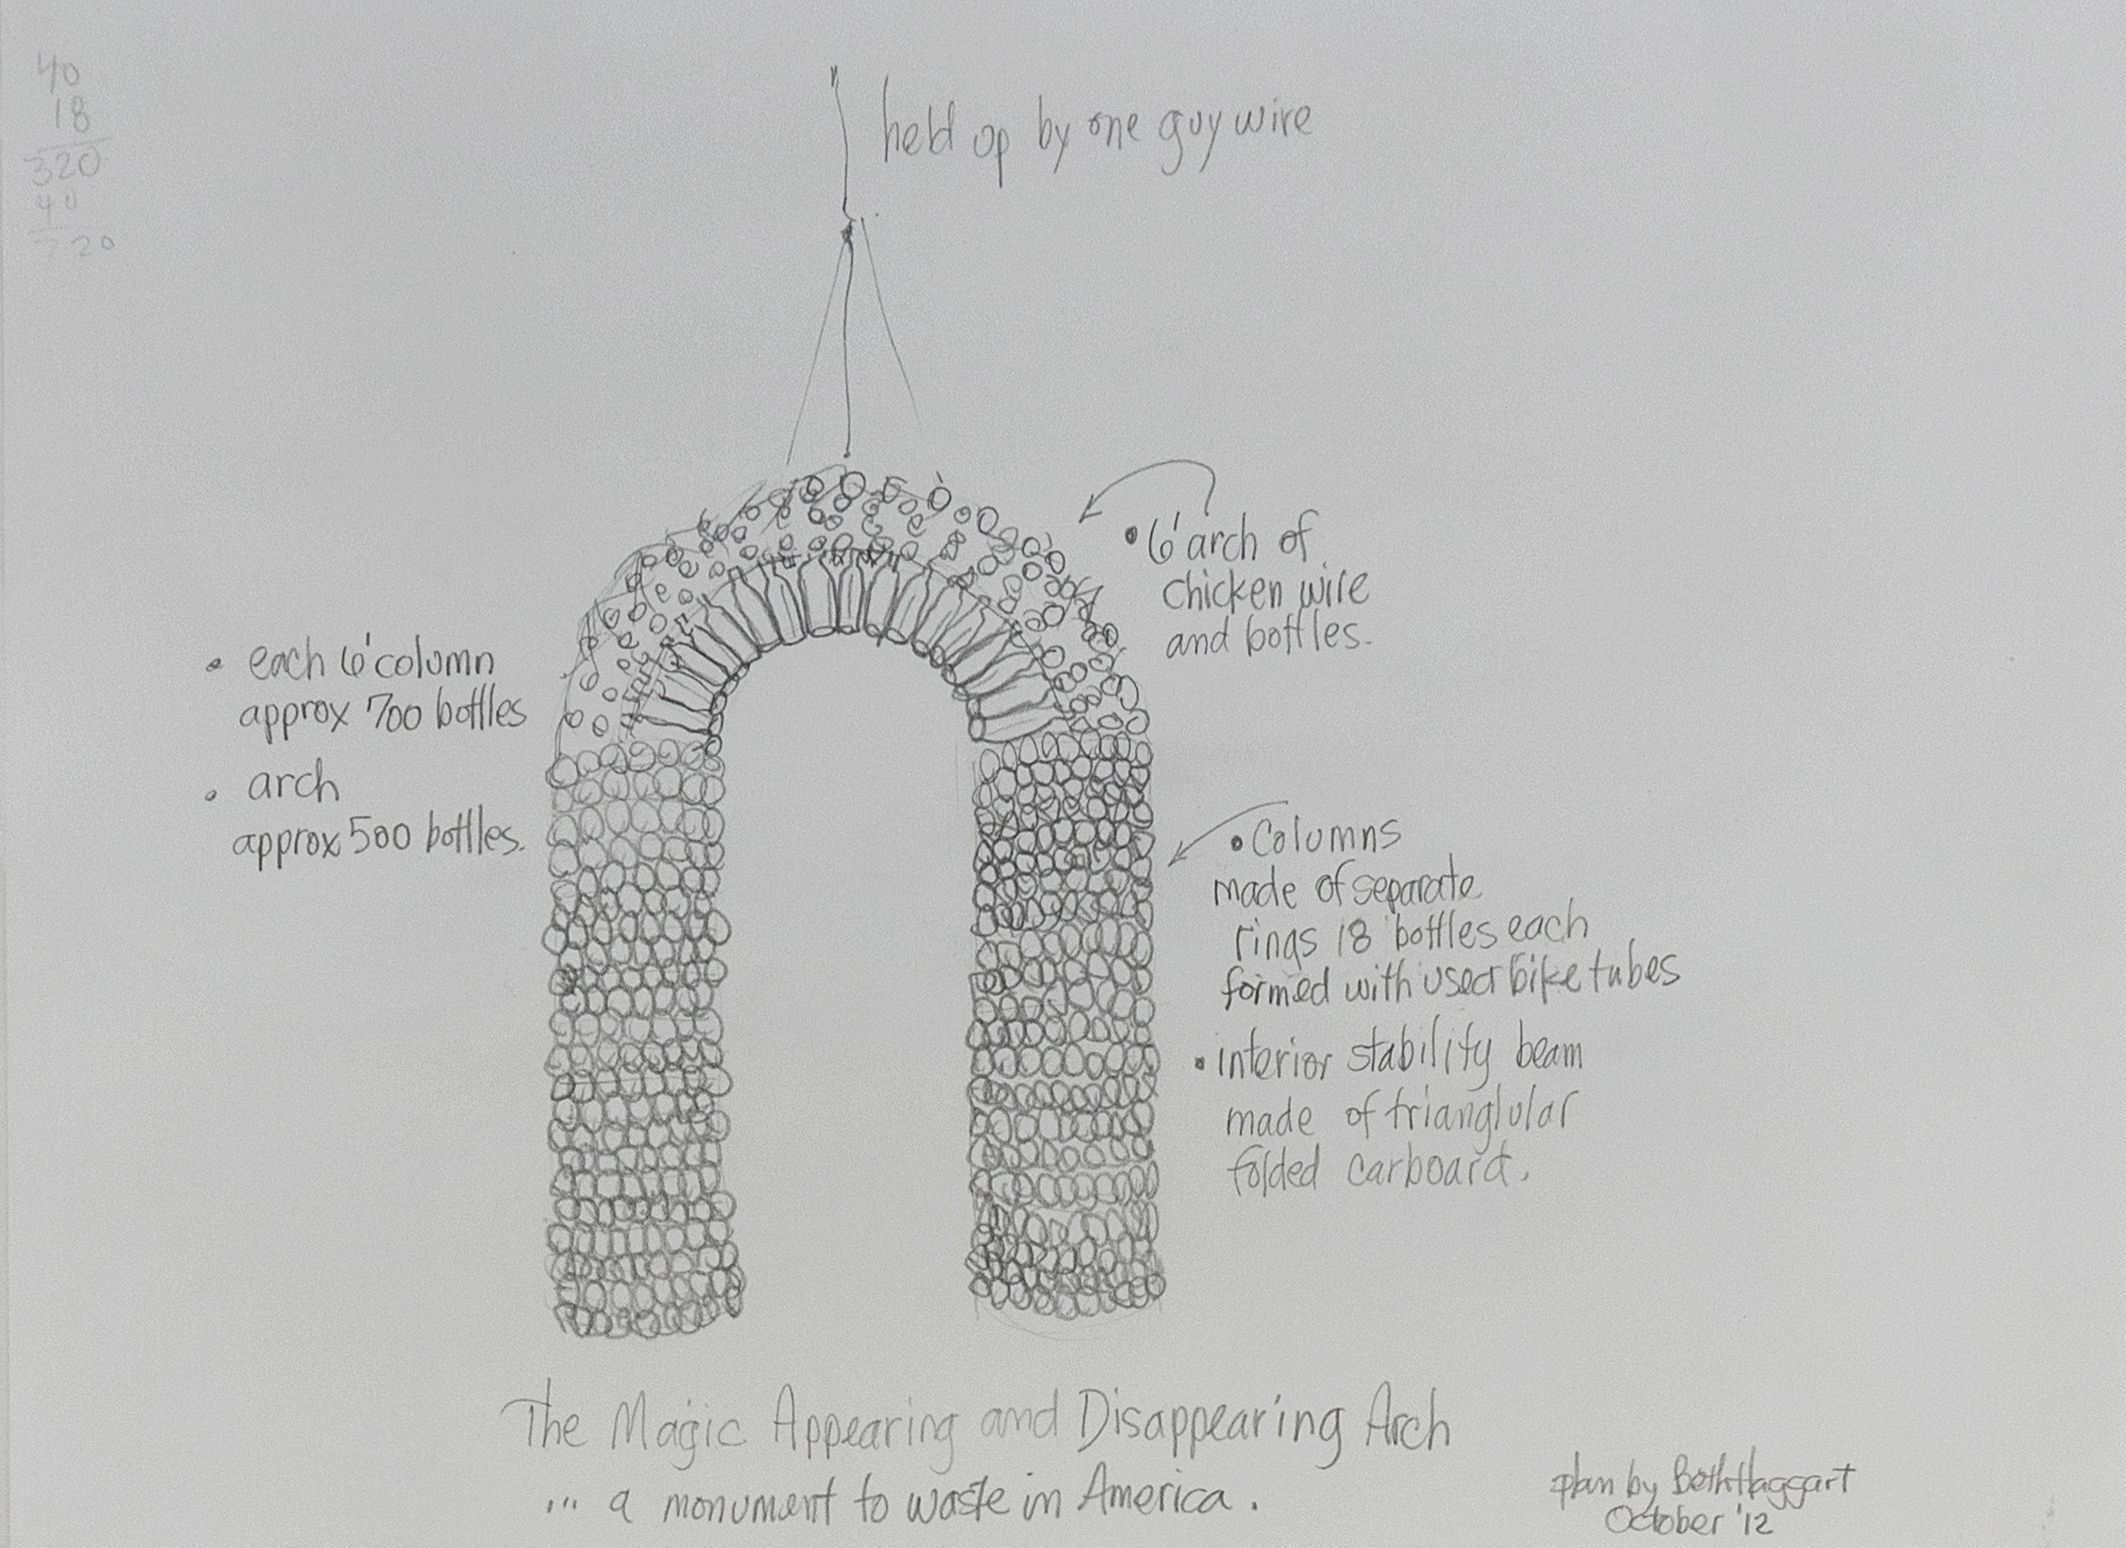 40
18
320
40
720
held up by one guy wire
• 6' arch of
chicken wire
and bottles.
• each 6' column
approx 700 bottles
• arch
approx 500 bottles.
• Columns
made of separate
rings 18 bottles each
formed with used bike tubes
• interior stability beam
made of trianglular
folded carboard.
The Magic Appearing and Disappearing Arch
... a monument to waste in America.
plan by Beth Haggart
October '12